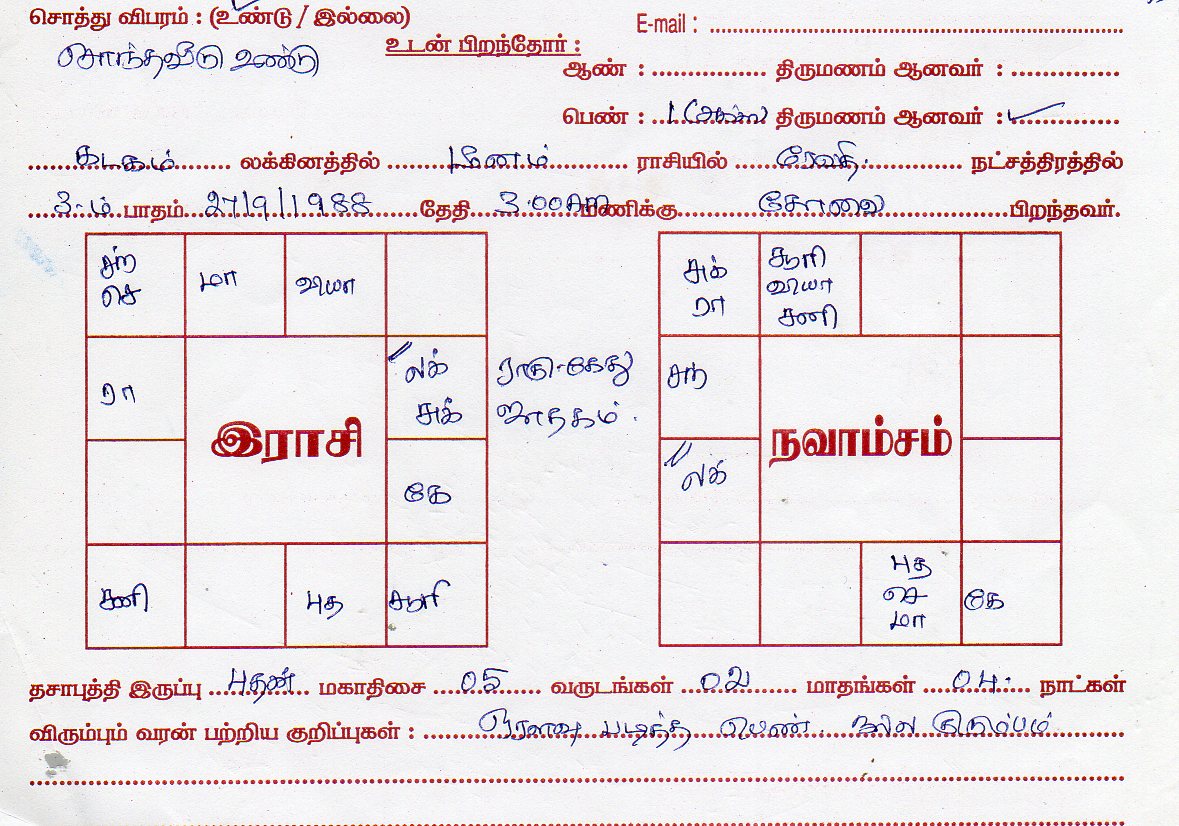 சொத்து விபரம் : (உண்டு / இல்லை)
E-mail :
சொந்தவீடு உண்டு
உடன் பிறந்தோர் :
ஆண் : திருமணம் ஆனவர் :
பெண் : 1 (அக்கா) திருமணம் ஆனவர் : ✓
கடகம் லக்கினத்தில் மீனம் ராசியில் ரேவதி நட்சத்திரத்தில்
3-ம் பாதம் 27/9/1988 தேதி 3.00AM மணிக்கு கோவை பிறந்தவர்.
சந்
செ
மா
வியா
ரா
லக்
சுக்
ராகு-கேது
ஜாதகம்.
இராசி
கே
சனி
புத
சூரி
சுக்
ரா
சூரி
வியா
சனி
சந்
லக்
நவாம்சம்
புத
செ
மா
கே
தசாபுத்தி இருப்பு புதன் மகாதிசை 05 வருடங்கள் 02 மாதங்கள் 04 நாட்கள்
விரும்பும் வரன் பற்றிய குறிப்புகள் : படித்த பெண். நல்ல குடும்பம்